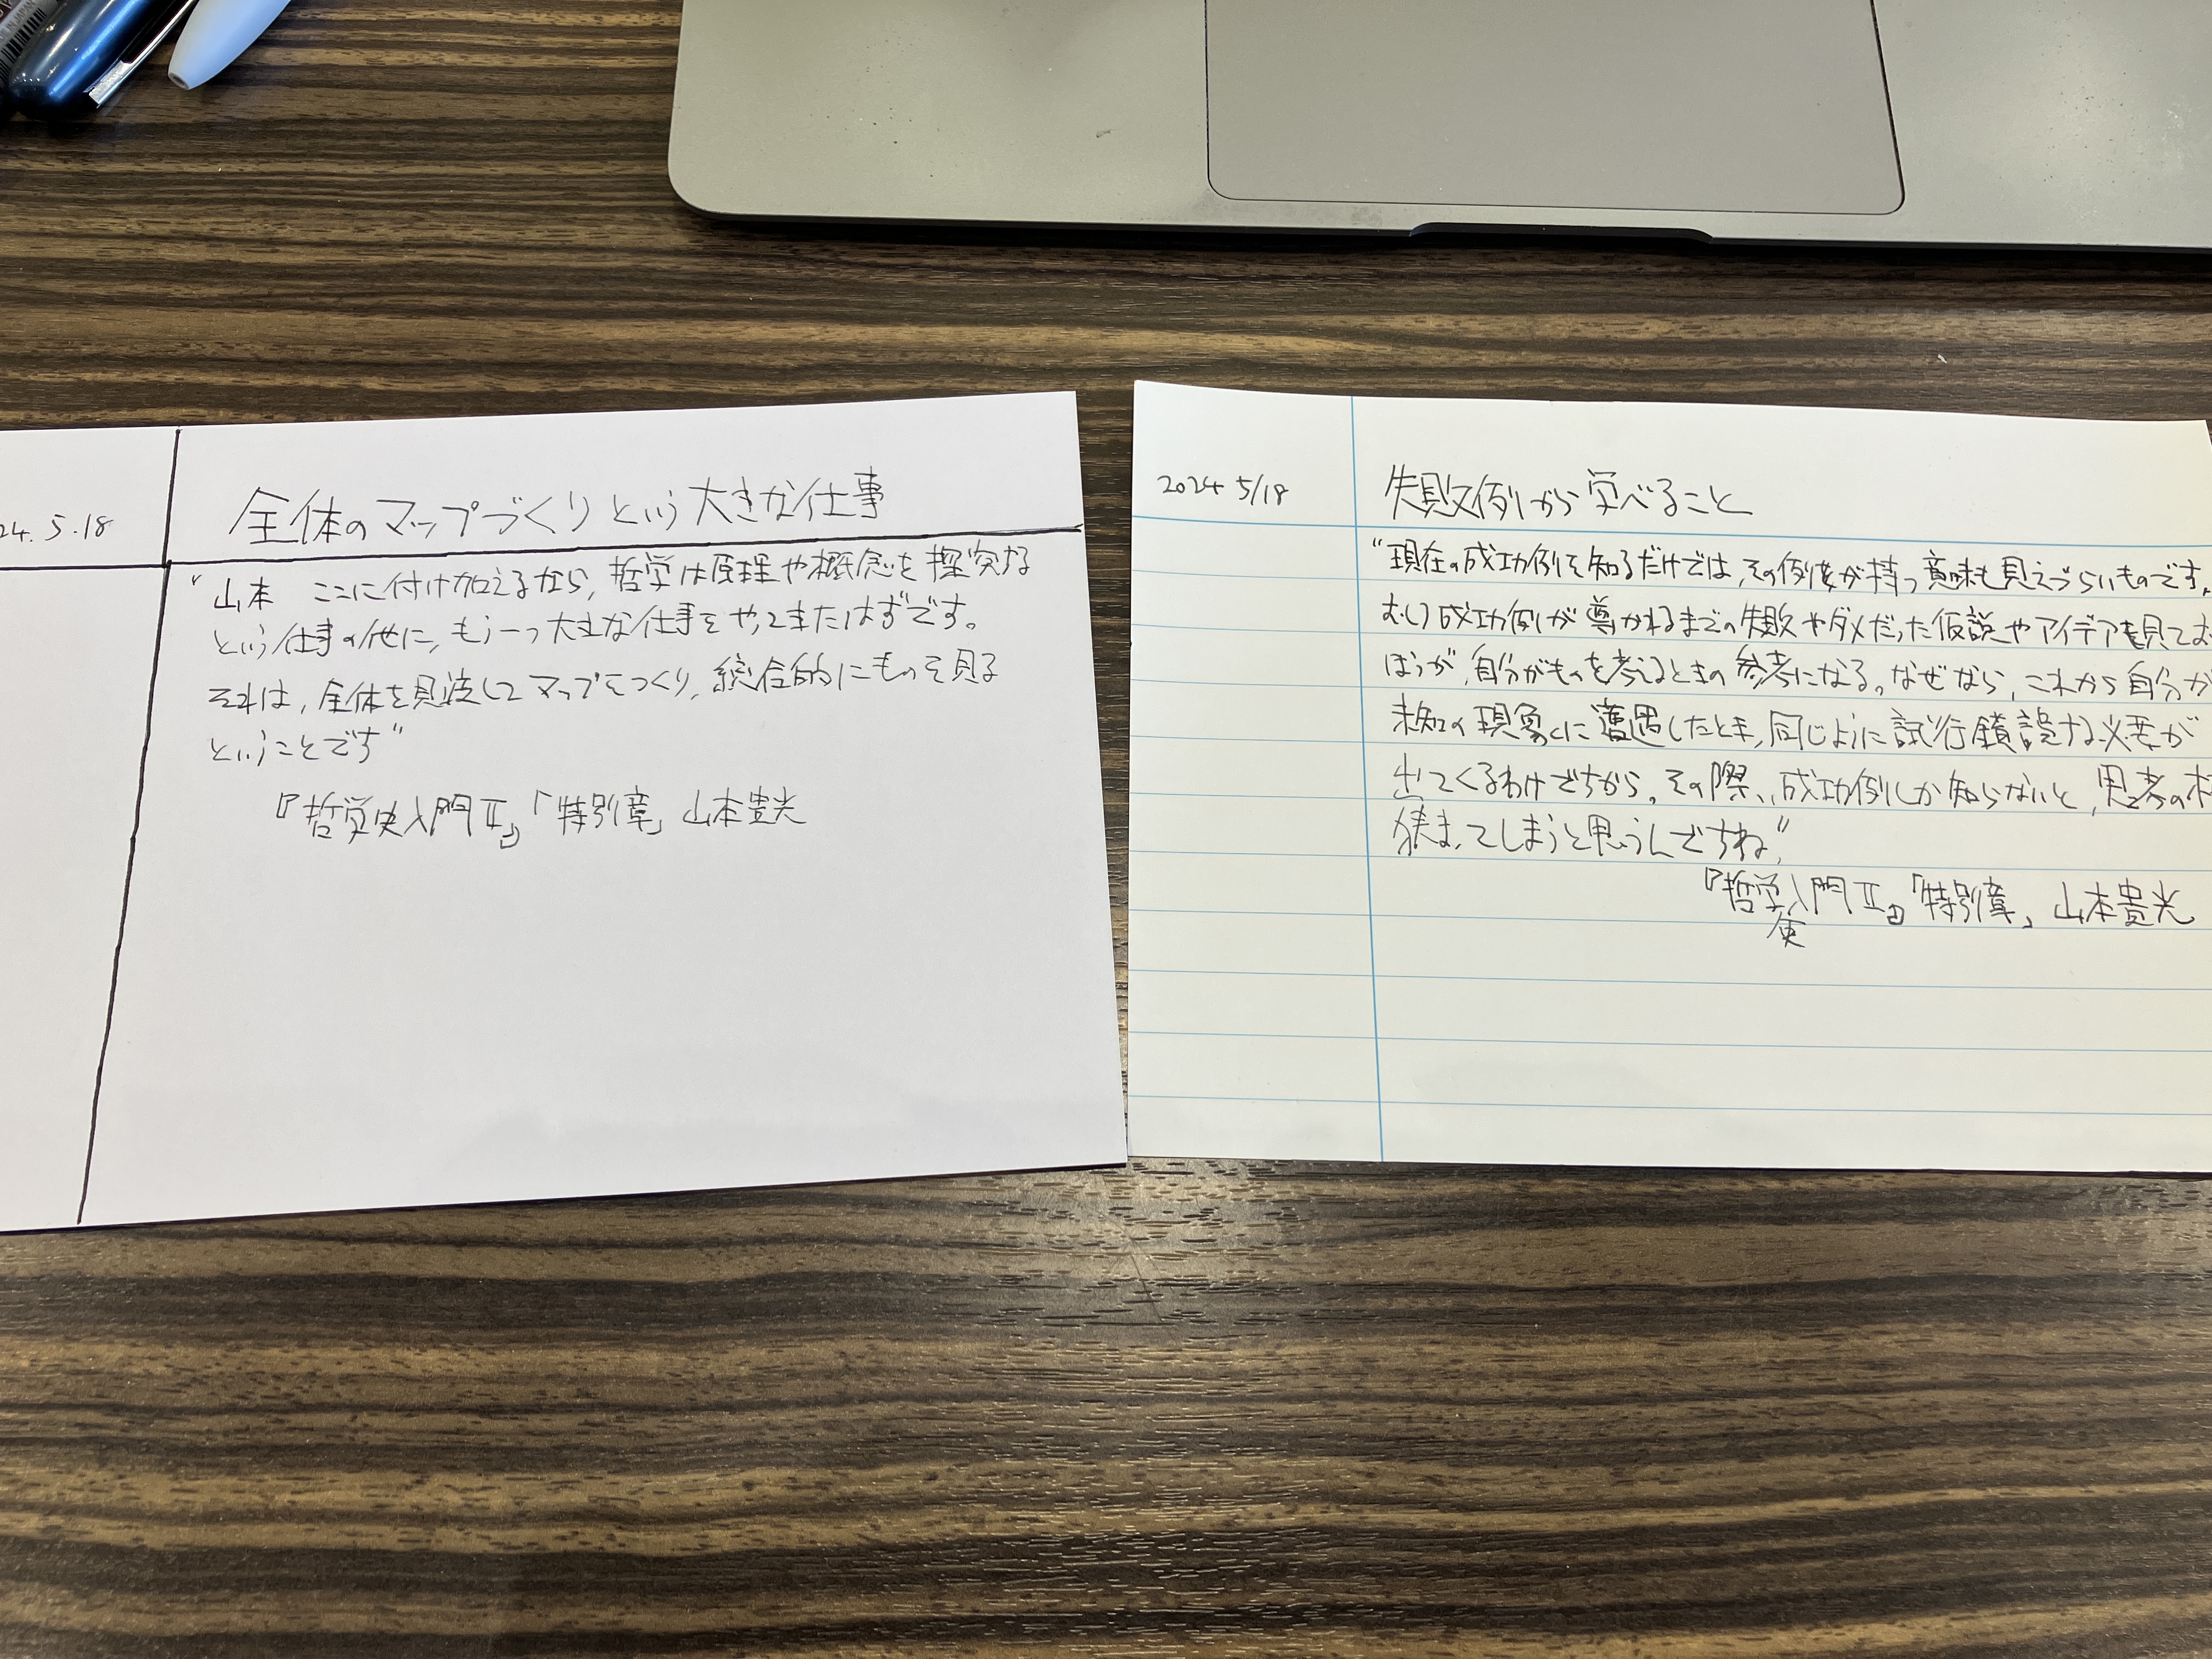 24.5.18
全体のマップづくりという大きな仕事
"山本 ここに付け加えるなら,哲学は原理や概念を探究する
という仕事の他に,もう一つ大きな仕事をやってきたはずです。
それは,全体を見渡してマップをつくり,総合的にものを見る
ということです"
『哲学史入門Ⅱ』「特別章」山本貴光
2024 5/18
失敗例から学べること
"現在の成功例を知るだけでは,その例が持つ意味も見えづらいものです。
むしろ成功例が導かれるまでの失敗やダメだった仮説やアイデアも見てお
ほうが,自分がものを考えるときの参考になる。なぜなら,これから自分が
未知の現象に遭遇したとき,同じように試行錯誤する必要が
出てくるわけですから。その際,成功例しか知らないと,思考の
狭まってしまうと思うんですね"
『哲学史入門Ⅱ』「特別章」山本貴光